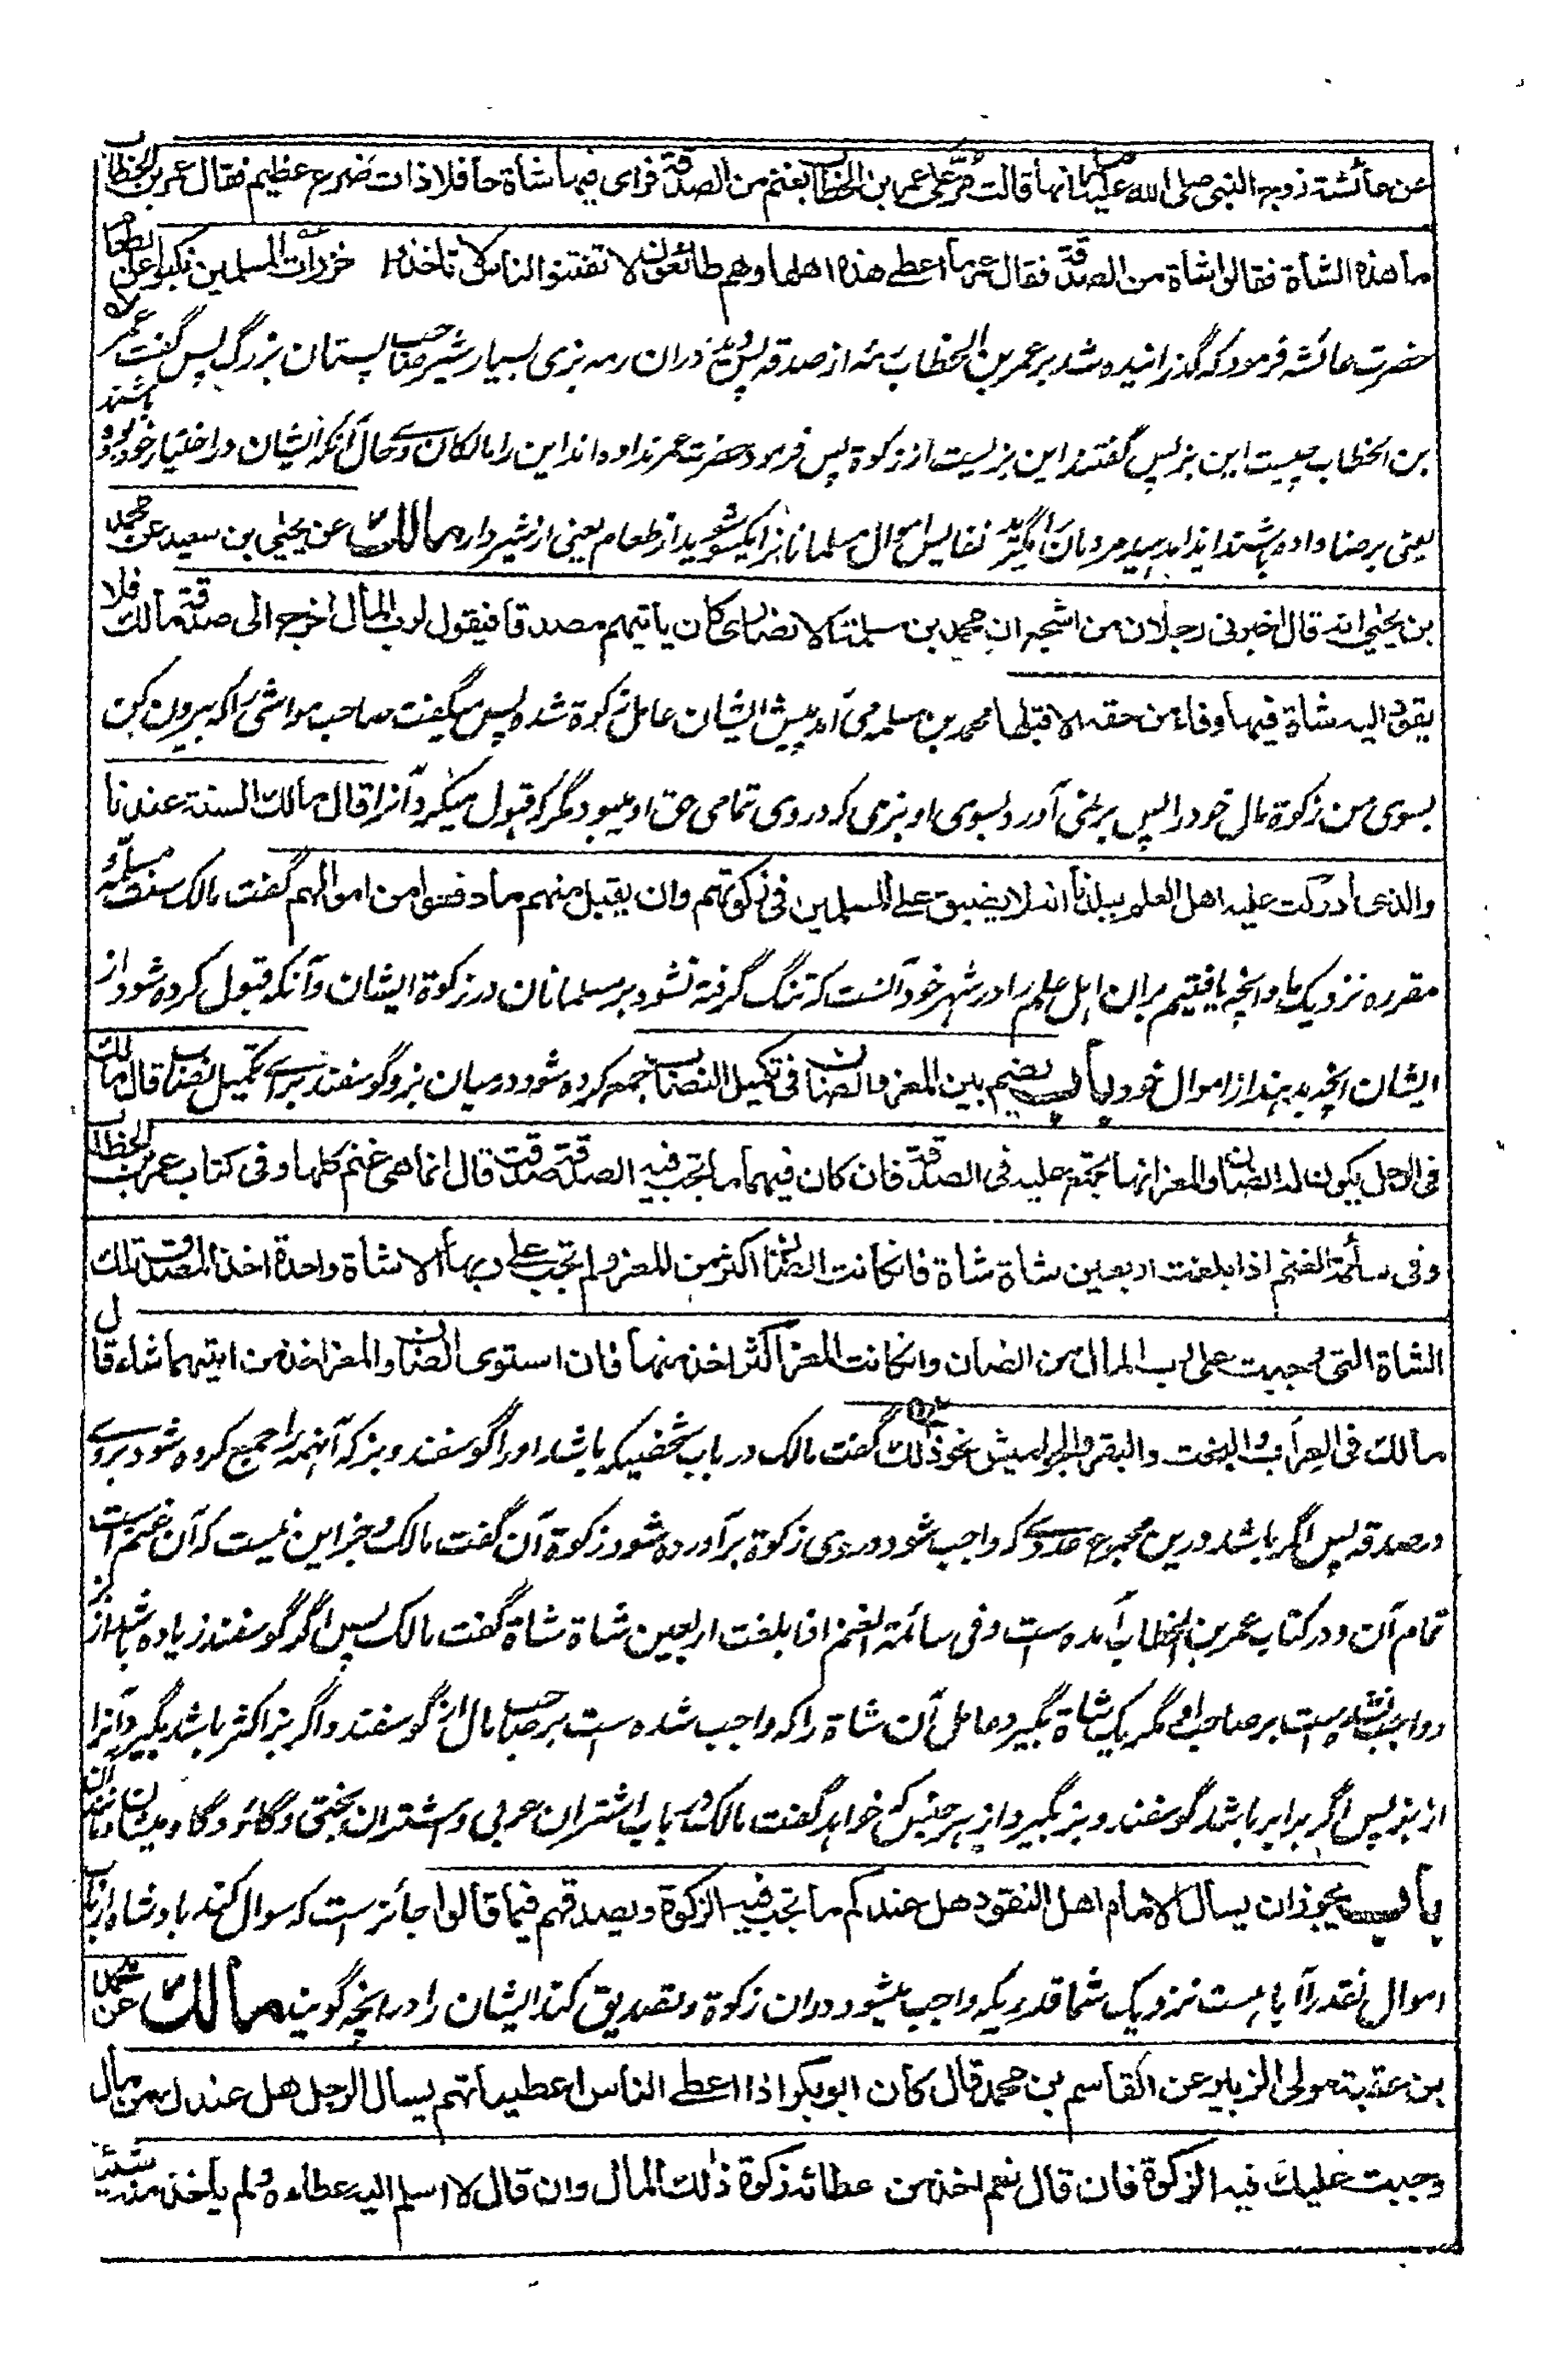 عن عائشة زوجة النبی صلی الله علیه وسلم انها قالت مُرَّ علی عمر بن الخطاب بغنم من الصدقة فرای فیها شاة حافلا ذات ضرع عظیم فقال عمر بن الخطاب
ما هذه الشاة فقالوا شاة من الصدقة فقال عمر ما اعطے هذه اهلها وهم طائعون لا تفتنوا الناس لا تاخذوا حزرات المسلمین نکبوا عن الطعام
حضرت عائشه فرمود که گذرانیده شد بر عمر بن الخطاب رمه از صدقه پس دید دران رمه بزی بسیار شیر صاحب پستان بزرگ پس گفت عمر
بن الخطاب چیست این بز پس گفتند این بزیست از زکوة پس فرمود حضرت عمر نداده اند این را مالکان وے حال آنکه ایشان در اختیار خود باشند
یعنی برضا داده باشند ایذا مدهید مردمان را مگیرید نفایس اموال مسلمانان را یکسو شوید از طعام یعنی از شیردار مالك عن یحیٰی بن سعید عن محمد
بن یحیٰی انه قال اخبرنی رجلان من اشجع ان محمد بن مسلمة الانصاری کان یاتیهم مصدقا فیقول لرب المال اخرج الی صدقة مالك فلا
یقود الیه شاة فیها وفاء من حقه الا قبلها محمد بن مسلمه می آمد پیش ایشان عامل زکوة شده پس میگفت صاحب مواشی را که بیرون کن
بسوی من زکوة مال خود را پس برنمی آورد بسوی او بزی که در وی تمامی حق او میبود مگر که قبول میکرد آنرا قال مالك السنة عندنا
والذی ادرکت علیه اهل العلم ببلدنا انه لا یضیق علے المسلمین فی زکوتهم وان یقبل منهم ما دفعوا من اموالهم گفت مالک سنت مسلمه و
مقرره نزدیک ما وانچه یافتیم بران اهل علم را در شهر خود آنست که تنگ گرفته نشود بر مسلمانان در زکوة ایشان وآنکه قبول کرده شود از
ایشان انچه بدهند از اموال خود باب یضم بین المعز والضان فی تکمیل النصاب جمع کرده شود درمیان بز وگوسفند برائے تکمیل نصاب قال مالك
فی الرجل یکون له الضان والمعز انها تجمع علیه فی الصدقة فان کان فیهما ما تجب فیه الصدقة صدقت قال انما هی غنم کلها وفی کتاب عمر بن الخطاب
وفی سائمة الغنم اذا بلغت اربعین شاة شاة فان کانت الضان اکثر من المعز ولم تجب علی ربها الا شاة واحدة اخذ المصدق تلك
الشاة التی وجبت علی رب المال من الضان وان کانت المعز اکثر اخذ منها فان استوی الضان والمعز اخذ من ایتهما شاء قال
مالك فی العِراب والبخت والبقر والجوامیش نحو ذلك گفت مالک در باب شخصیکه باشد اورا گوسفند وبز که آنهمه را جمع کرده شود بر وے
در صدقه پس اگر باشد درین مجموع عددے که واجب شود در وی زکوة برآورده شود زکوة آن گفت مالک وجز این نیست که آن غنم است
تمام آن ودر کتاب عمر بن الخطاب آمده است وفی سائمة الغنم اذا بلغت اربعین شاة شاة گفت مالک پس اگر گوسفند زیاده باشد از بز
وواجب نشده است بر صاحب او مگر یک شاة بگیرد عامل آن شاة را که واجب شده است بر صاحب مال از گوسفند واگر بز اکثر باشد بگیرد آنرا
از بز پس اگر برابر باشد گوسفند وبز بگیرد از هر جنس که خواهد گفت مالک در باب اشتران عربی واشتران بختی وگاؤ وگاومیشان مانند آن
باب یجوز ان یسال الامام اهل النقود هل عندکم ما تجب فیه الزکوة ویصدقهم فیما قالوا جائز است که سوال کند بادشاه ارباب
اموال نقد را آیا هست نزدیک شما قدریکه واجب میشود دران زکوة وتصدیق کند ایشان را در انچه گویند مالك عن محمد
بن عقبة مولی الزبیر عن القاسم بن محمد قال کان ابو بکر اذا اعطے الناس اعطیاتهم یسال الرجل هل عندك من مال
وجبت علیك فیه الزکوة فان قال نعم اخذ من عطائه زکوة ذٰلك المال وان قال لا اسلم الیه عطاءه ولم یاخذ منه شیئا